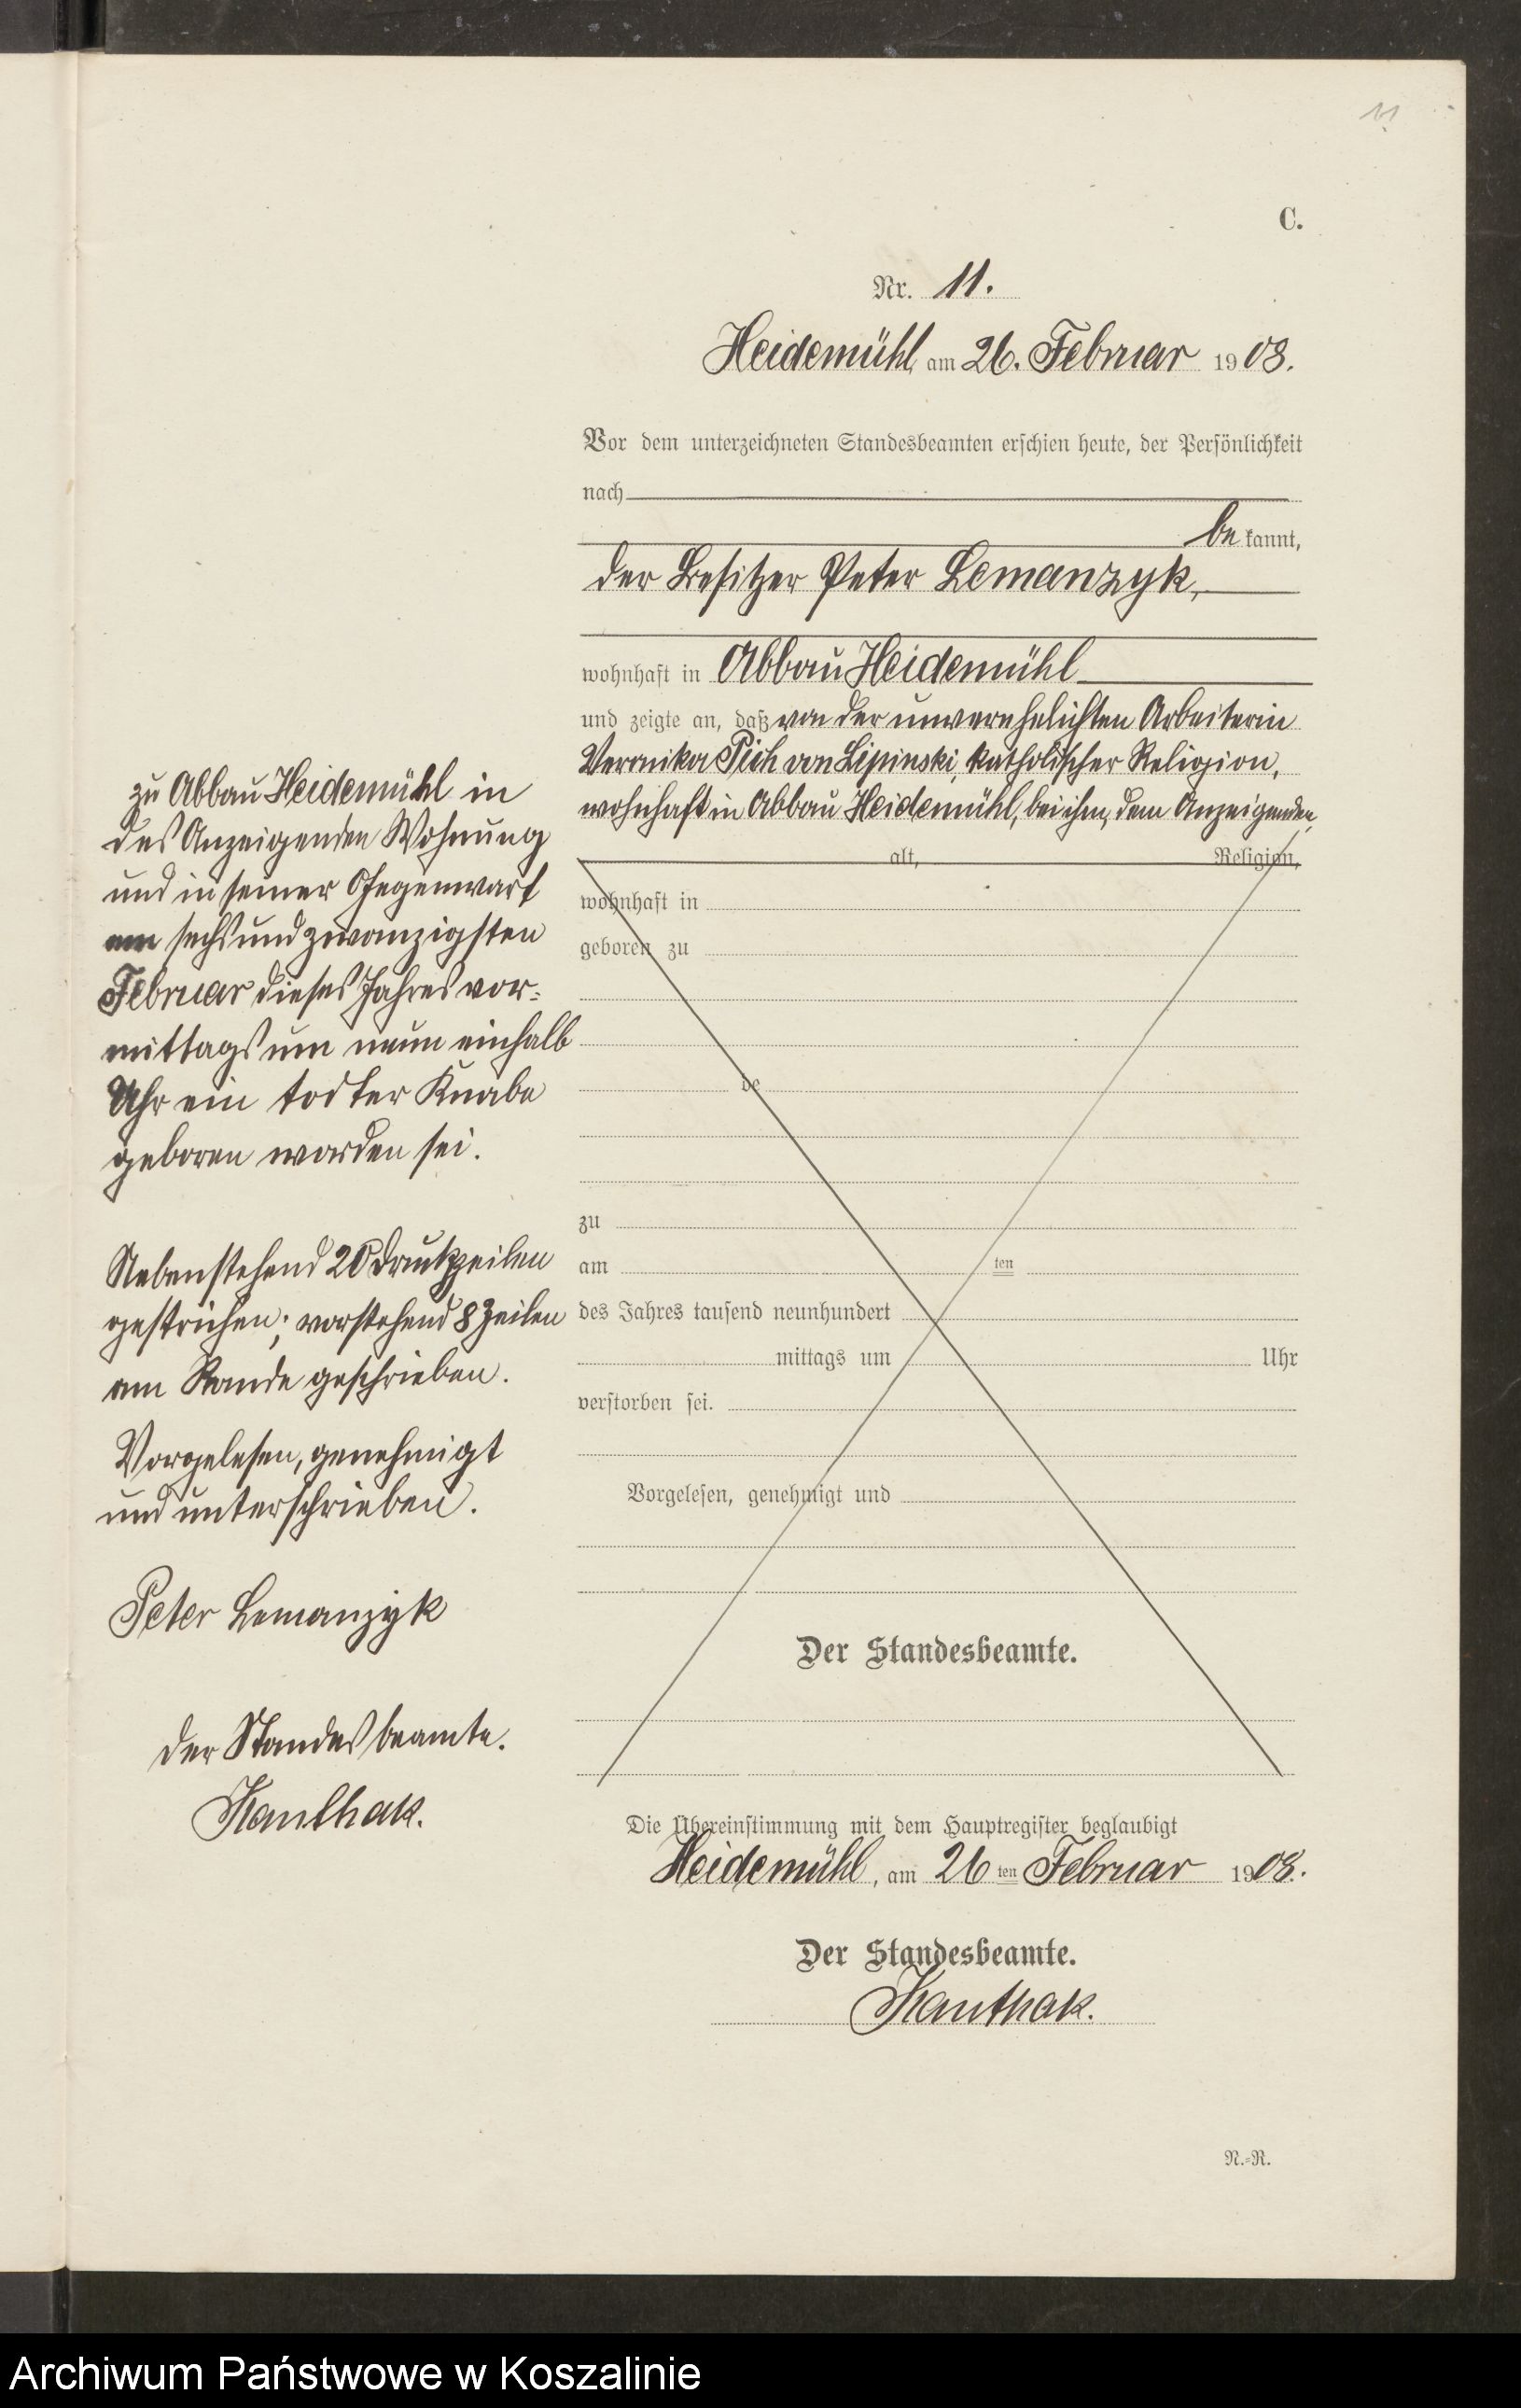 11
C.
Nr. 11.
Heidemühl, am 26. Februar 1908.
Vor dem unterzeichneten Standesbeamten erschien heute, der Persönlichkeit
nach
be kannt,
der Besitzer Peter Lemanzyk,
wohnhaft in Abbau Heidemühl
und zeigte an, daß von der unverehelichten Arbeiterin
Veronika Pich von Lipinski, katholischer Religion,
wohnhaft in Abbau Heidemühl, bei ihm, dem Anzeigenden,
zu Abbau Heidemühl in
des Anzeigenden Wohnung
und in seiner Gegenwart
am sechsundzwanzigsten
Februar dieses Jahres vor-
mittags um neun einhalb
Uhr ein todter Knabe
geboren worden sei.
Nebenstehend 20 Druckzeilen
gestrichen; vorstehend 8 Zeilen
am Rande geschrieben.
Vorgelesen, genehmigt
und unterschrieben.
Peter Lemanzyk
Der Standesbeamte.
Kauthak.
alt, Religion,
wohnhaft in
geboren zu
de
zu
am ten
des Jahres tausend neunhundert
mittags um Uhr
verstorben sei.
Vorgelesen, genehmigt und
Der Standesbeamte.
Die Übereinstimmung mit dem Hauptregister beglaubigt
Heidemühl, am 26 ten Februar 1908.
Der Standesbeamte.
Kauthak.
N.-R.
Archiwum Państwowe w Koszalinie